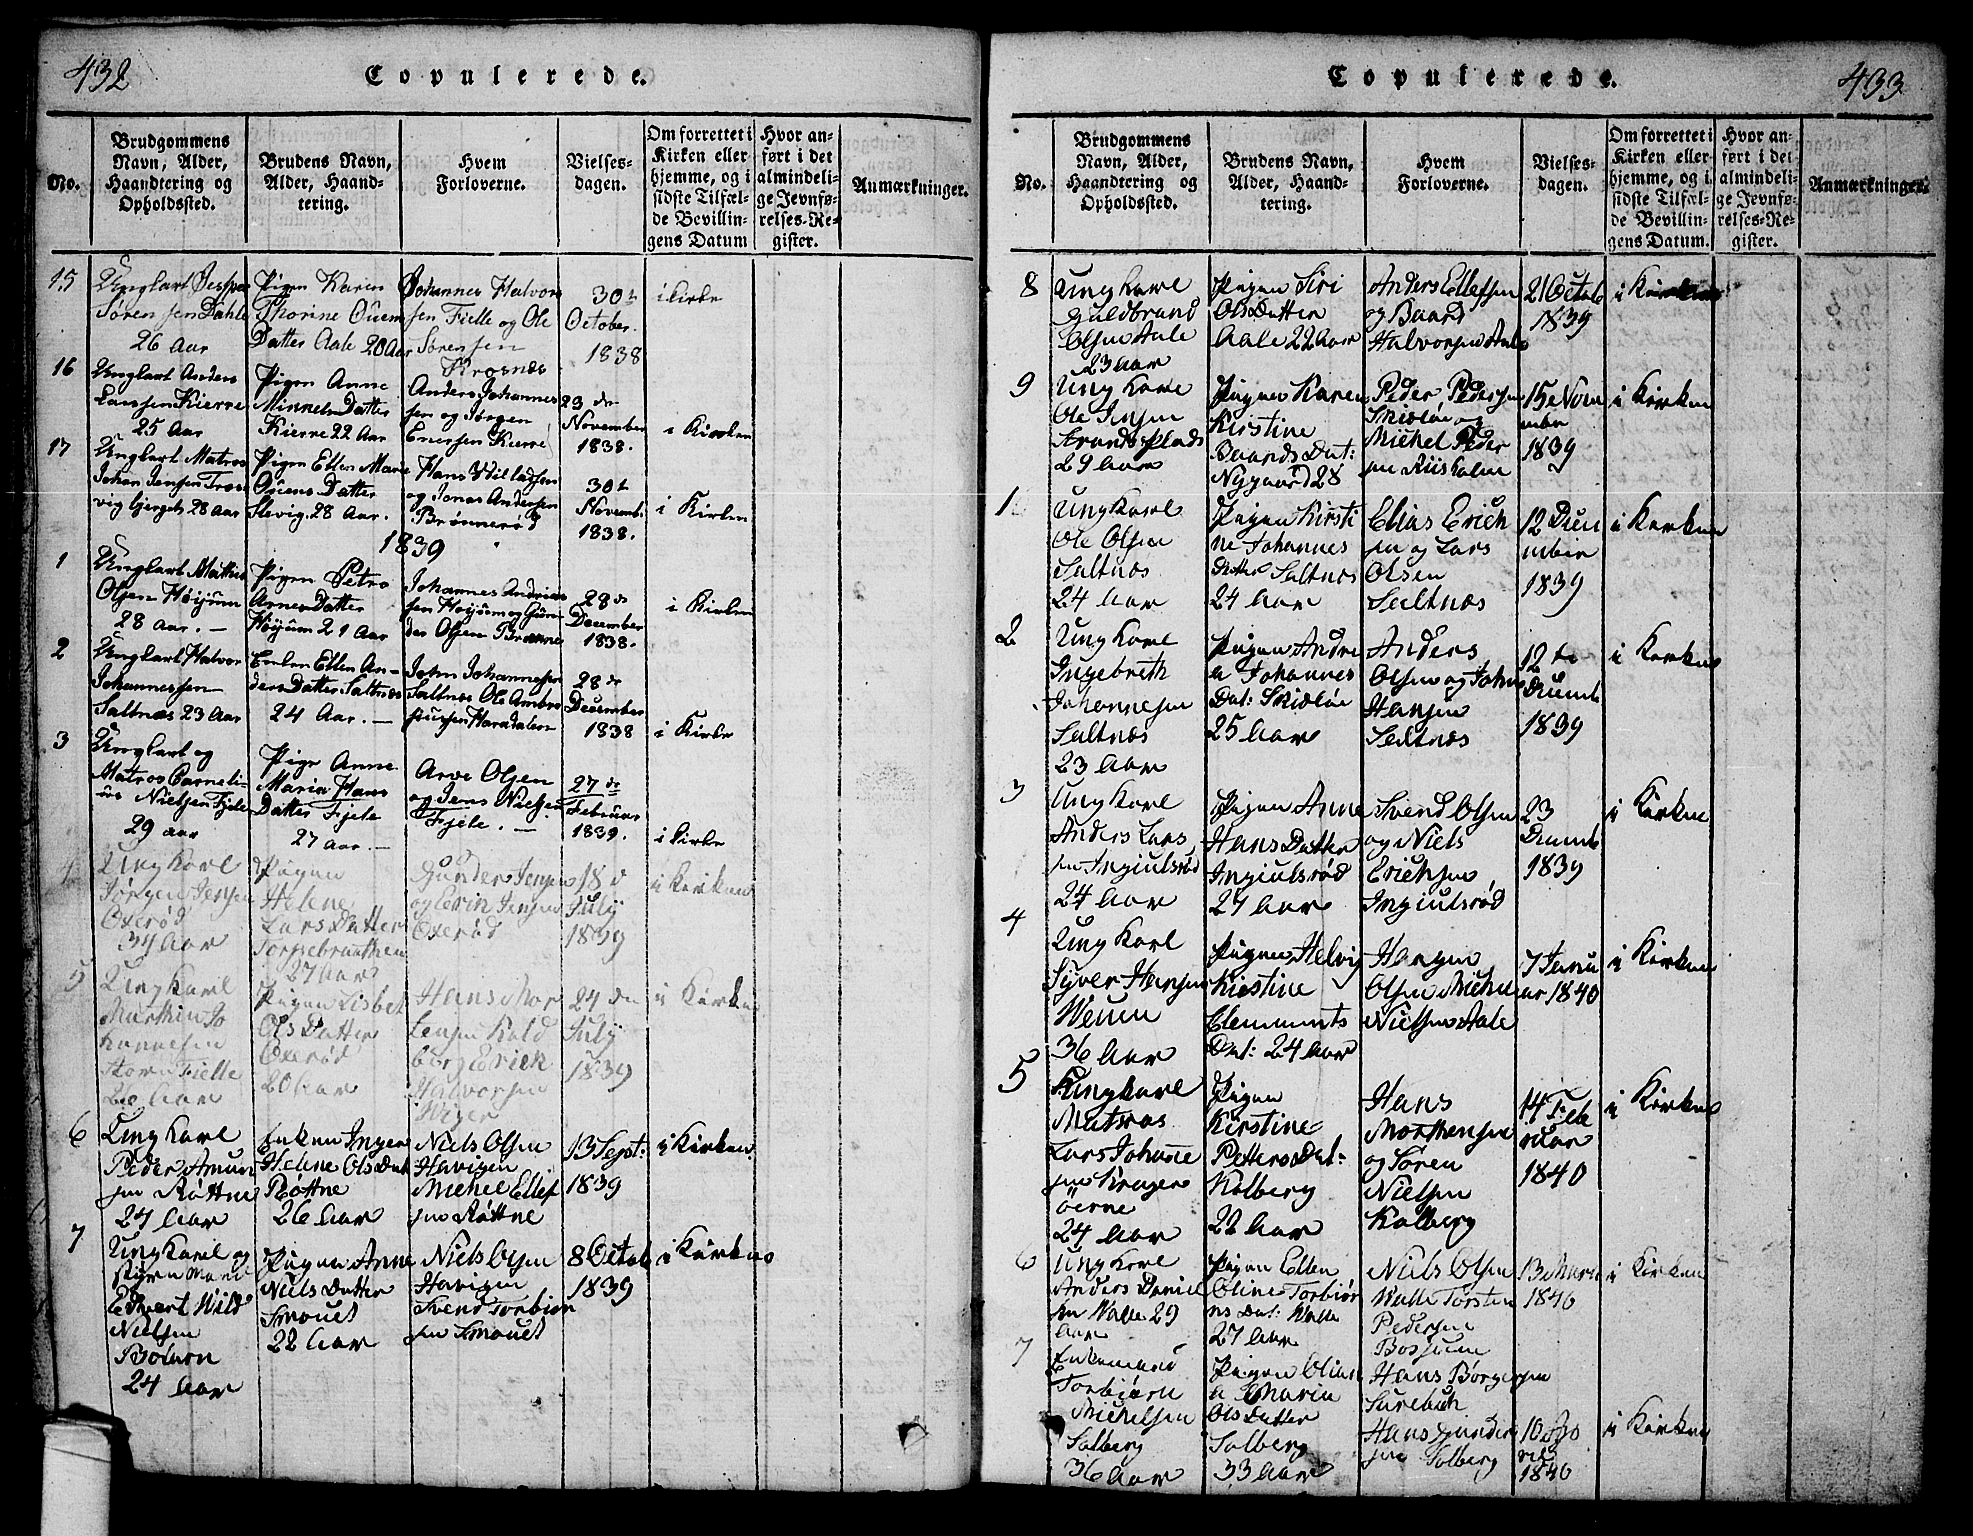 432
Copulerede.
No.
Brudgommens
Navn, Alder,
Haandtering og
Opholdssted.
Brudens Navn,
Alder, Haand-
tering.
Hvem
Forloverne.
Vielses-
dagen.
Om forrettet i
Kirken eller
hjemme, og i
sidste Tilfæl-
de Bevillin-
gens Datum
Hvor an-
ført i det
almindeli-
ge Jevnfø-
relses-Re-
gister.
Anmærkninger.
15
Ungkarl Jesper
Sørensen Dahle
26 Aar
Pigen Karen
Thorine Ouem
Datter Aale 20 Aar
Johannes Halvor
sen Fielle og Ole
Sørensen
Krosnæs
30te
October
1838
i Kirke
16
Ungkarl Anders
Larssen Kierre
25 Aar
Pigen Anne
Minnels Datter
Kierre 22 Aar
Anders Johannes
sen og Jørgen
Enersen Kierre
23 de
November
1838.
i Kirken
17
Ungkarl Matros
Johan Jensen Tros
vig bjerget 28 Aar
Pigen Ellen Marie
Ouens Datter
Slevig. 28 Aar.
Hans Willadsen
og Jonas Andersen
Brønnerød
30te
Novemb.
1838.
i Kirken
1839
1
Ungkarl Mathis
Olsen Høyum
28 Aar. —
Pigen Petro
Arnes Datter
Høyum 21 Aar
Johannes Andrias
sen Høyum og Gun
der Olsen Brenne
28de
December
1838.
i Kirken
2
Ungkarl Halvor
Johannessen
Saltnæs 23 Aar
Enken Ellen An-
ders Datter Saltnæs
24 Aar. —
John Johannesen
Saltnæs Ole Ambro
siusen Haradalen
28de
December
1838
i Kirke
3
Ungkarl og
Matros Corneli-
us Nielsen Fjele
29 aar
Pige Anne
Maria Hans
Datter Fjele
27 aar. —
Arve Olsen
og Jens Nielsen
Fjele. —
27 de
Februar
1839.
i Kirke
4
Ung Karl
Jørgen Jensen
Oxerød
34 Aar
Pigen
Helene
Lars Datter
Torpebraathen
27 Aar
Gunder Jensen
og Erin Jensen
Oxerød
18 d
July
1839
i Kirken
5
Ung Karl
Morthen Jo
hannesen
Store Fielle
26 Aar
Pigen Lisbet
Ols Datter
Oxerød
20 Aar
Hans Mor
tensen Kold
borg Erich
Halvorsen
Viger
24 de
July
1839
i Kirken
6
Ung Karl
Peder Amun
sen Røttne
24 Aar
Enken Inger
Helene Ols Dat
Røttne
26 Aar
Niels Olsen
Havigen
Michel Ellef
sen Røttne
13 Sept:
1839
i Kirken
7
Ung Karl og
styrmand
Edvert Wild
Nielsen
24 Aar
Pigen Anne
Niels Datter
Smouet
22 Aar
Niels Olsen
Havigen
Svend Torbiør
sen Smouet
8 Octob
1839
i Kirken
433
Copulerede.
No.
Brudgommens
Navn, Alder,
Haandtering og
Opholdssted.
Brudens Navn,
Alder, Haand-
tering.
Hvem
Forloverne.
Vielses-
dagen.
Om forrettet i
Kirken eller
hjemme, og i
sidste Tilfæl-
de Bevillin-
gens Datum.
Hvor an-
ført i det
almindeli-
ge Jevnfø-
relses-Re-
gister.
Anmærkninger.
8
Ung Karl
Guldbrand
Olsen Aale
23 Aar
Pigen Siri
Ols Datter
Aale 22 Aar
Anders Ellefsen
og Baard
Halvorsen Aale
21 Octob
1839
i Kirken
9
Ung Karl
Ole Jensen
Strands plads
29 Aar
Pigen Karen
Kirstine
Baards Dat:
Nygaard 28
Peder Pedersen
Skidløe og
Michel Peder
sen Riisholm
15 e Nom
mber
1839
i Kirken
1
Ung Karl
Ole Olsen
Saltnæs
24 Aar
Pigen Kirsti
ne Johannes
Datter Saltnæs
24 Aar
Elias Erich
sen og Lars
Olsen
Saltnæs
12 Dec
mber
1839
i Kirken
2
Ung Karl
Ingebreth
Johannesen
Saltnæs
23 Aar
Pigen Andre
a Johannes
Dat: Skidløe
25 Aar
Anders
Olsen og Johns
Hansen
Saltnæs
12 te
Decemb
1839
i Kirken
3
Ung Karl
Anders Lars
sen Ingiulsrød
24 Aar
Pigen Anne
Hans Datter
Ingiulsrød
27 Aar
Svend Olsen
og Niels
Erichsen
Ingiulsrød
23
Decemb
1839
i Kirken
4
Ung Karl
Syver Hansen
Weum
36 Aar
Pigen Helvig
Kirstine
Clemments
Dat: 24 Aar
Hansen
Olsen Michel
Nielsen Aale
7 Janu
ar 1840
i Kirken
5
Ung Karl
Matros
Lars Johanne
sen Krager
øerne
24 Aar
Pigen
Kirstine
Petters Dat:
Kolberg
22 Aar
Hans
Morthensen
og Søren
Nielsen
Kalberg
14 Feb
ruar
1840
i Kirken
6
Ung Karl
Anders Daniel
sen Walle 29
Aar
Pigen Ellen
Oline Torbiør
ns Dat: Walle
27 Aar
Niels Olsen
Walle Torsten
Pedersen
Bossum
13 Marts
1840
i Kirken
7
Enkemand
Torbiørn
Michelsen
Solberg
36 Aar
Pigen Olian
a Maria
Ols Datter
Solberg
33 Aar
Hans Børgersen
Surebuch
Hans Gunder
sen Solberg
10
1840
i Kirken